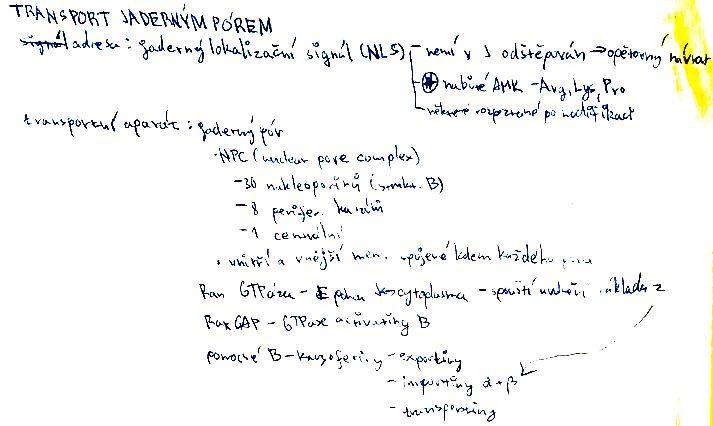 TRANSPORT JADERNÝM PÓREM
signál adresa: jaderný lokalizační signál (NLS) - není v J odštěpován → opětovný návrat
⊕ nabité AMK - Arg, Lys, Pro
- některé rozpoznané po
transportní aparát: jaderný pór
· NPC (nuclear pore complex)
- 30 nukleoporinů (strukt. B)
- 8 perifer. kanálů
- 1 centrální
· vnitřní a vnější mem. spojené kolem každého póru
Ran GTPáza - E pohu J↔cytoplasma - spouští uvolnění nákladu z
RanGAP - GTPase activating B
pomocné B - karyoferiny - exportiny
- importiny α+β
- transportiny